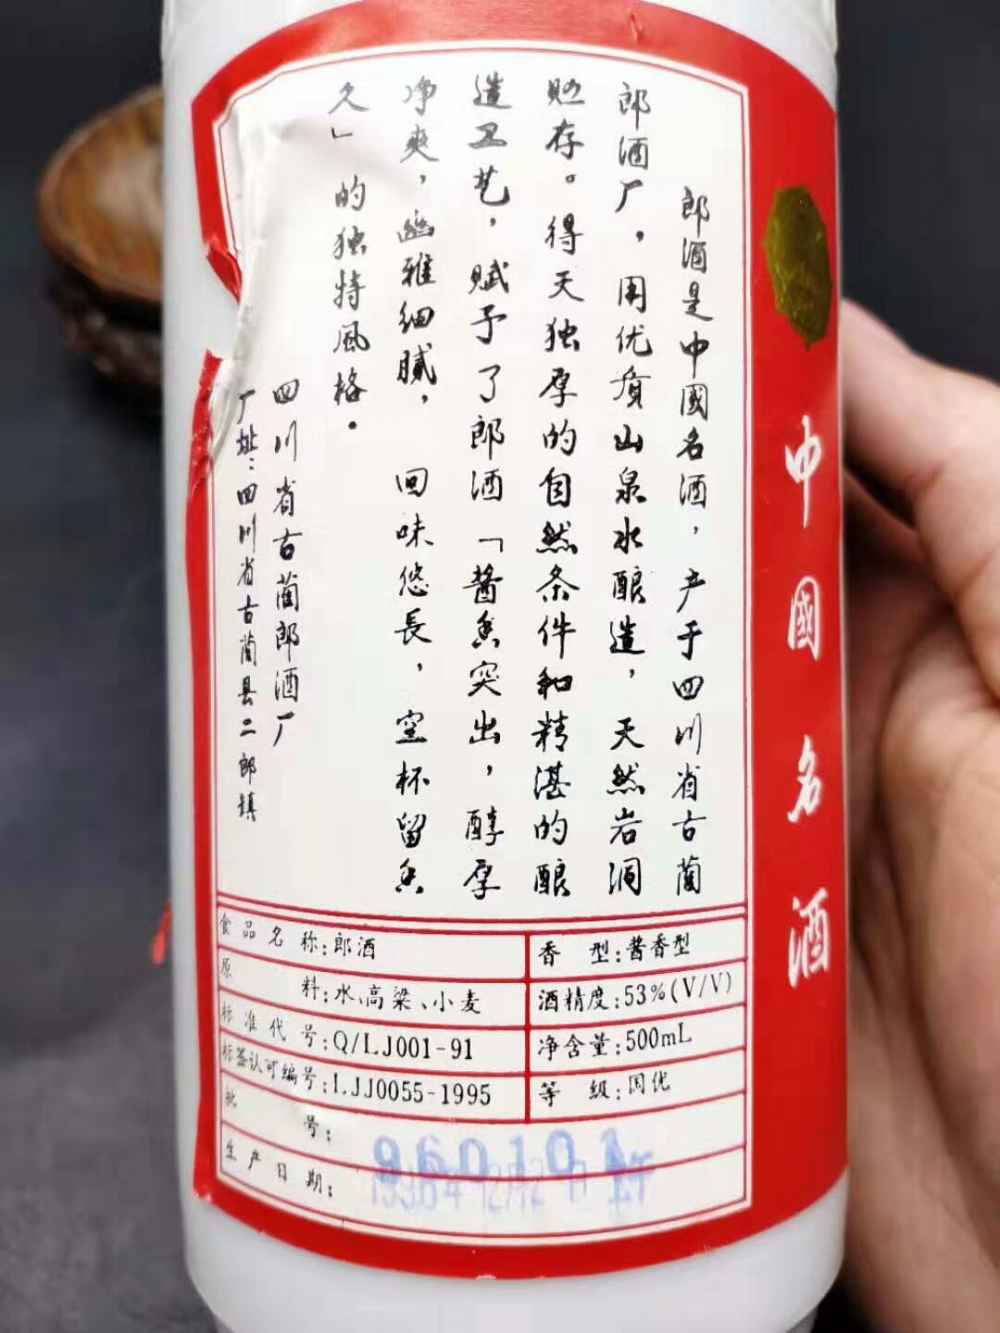 郎酒是中國名酒，产于四川省古蔺
郎酒厂，用优质山泉水酿造，天然岩洞
贮存。得天独厚的自然条件和精湛的酿
造工艺，赋予了郎酒「酱香突出，醇厚
净爽，幽雅细腻，回味悠長，空杯留香
久」的独特風格。
四川省古蔺郎酒厂
厂址：四川省古蔺县二郎镇
中國名酒
食品名称：郎酒
香型：酱香型
原料：水、高粱、小麦
酒精度：53%(V/V)
标准代号：Q/LJ001-91
净含量：500mL
标签认可编号：LJJ0055-1995
等级：国优
批号：960101
生产日期：